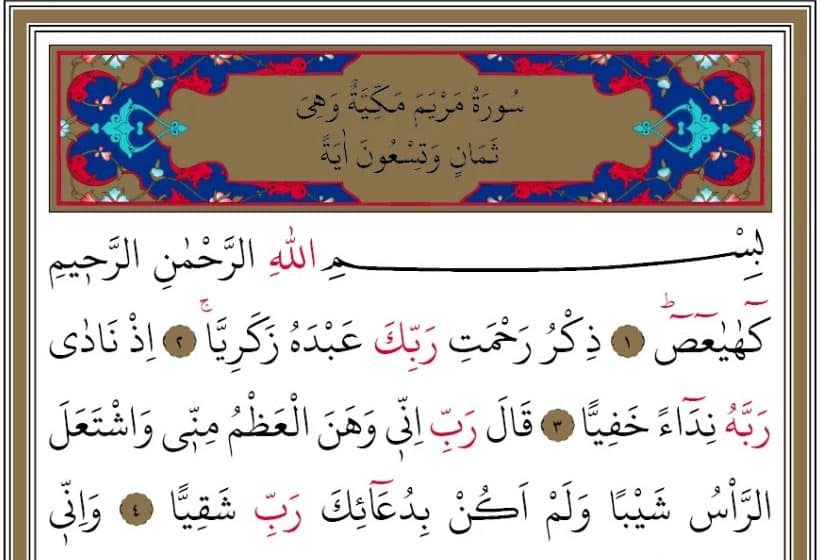 سُورَةُ مَرْيَمَ مَكِّيَّةٌ وَهِىَ
ثَمَانٍ وَتِسْعُونَ اٰيَةً
بِسْمِ اللّٰهِ الرَّحْمٰنِ الرَّح۪يمِ
كٓهٰيٰعٓصٓ ط ﴿١﴾ ذِكْرُ رَحْمَتِ رَبِّكَ عَبْدَهُ زَكَرِيَّاۚ ﴿٢﴾ اِذْ نَادٰى
رَبَّهُ نِدَٓاءً خَفِيًّا ﴿٣﴾ قَالَ رَبِّ اِنّ۪ى وَهَنَ الْعَظْمُ مِنّ۪ى وَاشْتَعَلَ
الرَّاْسُ شَيْبًا وَلَمْ اَكُنْ بِدُعَٓائِكَ رَبِّ شَقِيًّا ﴿٤﴾ وَاِنّ۪ى